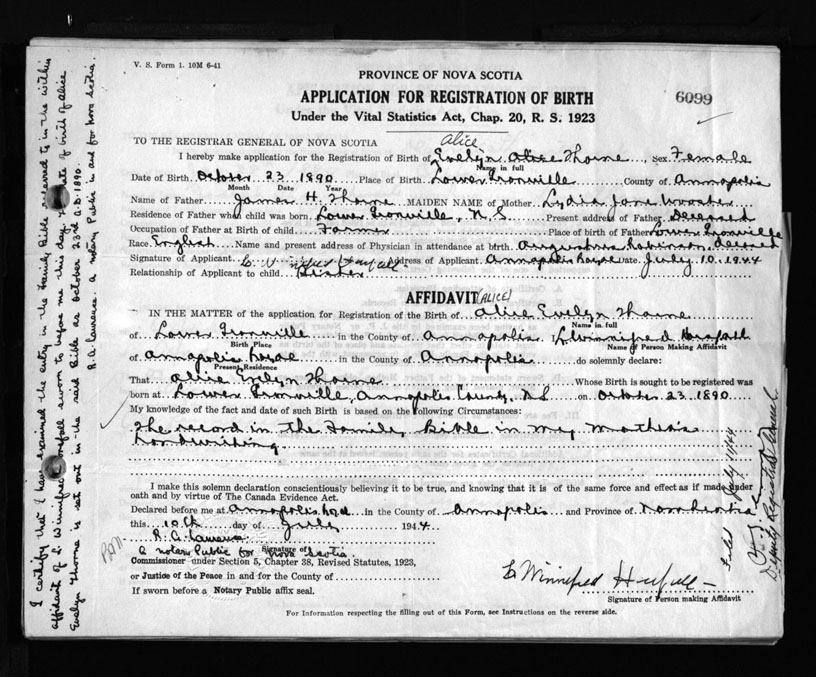 V. S. Form 1. 10M 6-41
PROVINCE OF NOVA SCOTIA
APPLICATION FOR REGISTRATION OF BIRTH
6099
Under the Vital Statistics Act, Chap. 20, R. S. 1923
TO THE REGISTRAR GENERAL OF NOVA SCOTIA
Alice
I hereby make application for the Registration of Birth of Evelyn Alice Thorne, sex Female
Name in full
Date of Birth October 23 1890 Place of Birth Lower Granville County of Annapolis
Month Date Year
Name of Father James H. Thorne MAIDEN NAME of Mother Lydia Jane Wooster
Residence of Father when child was born Lower Granville, N. S. Present address of Father deceased
Occupation of Father at Birth of child Farmer Place of birth of Father Lower Granville
Race English Name and present address of Physician in attendance at birth Augustus Robinson, deceased
Signature of Applicant Address of Applicant Annapolis Royal Date July 10, 1944
Relationship of Applicant to child Sister
AFFIDAVIT (ALICE)
IN THE MATTER of the application for Registration of the Birth of Alice Evelyn Thorne
Name in full
of Lower Granville in the County of Annapolis L Winnifred
Birth Place Name of Person Making Affidavit
of Annapolis Royal in the County of Annapolis do solemnly declare:
Present Residence
That Alice Evelyn Thorne Whose Birth is sought to be registered was
born at Lower Granville, Annapolis County, N.S on October 23 1890
My knowledge of the fact and date of such Birth is based on the following Circumstances:
The record in the Family Bible in my Mother's
handwriting
I make this solemn declaration conscientiously believing it to be true, and knowing that it is of the same force and effect as if made under
oath and by virtue of The Canada Evidence Act.
Declared before me at Annapolis Royal in the County of Annapolis and Province of Nova Scotia
this 10th day of July 1944
R. A. Laurence
A notary Public for Nova Scotia
Signature of
Commissioner under Section 5, Chapter 38, Revised Statutes, 1923,
or Justice of the Peace in and for the County of
If sworn before a Notary Public affix seal.
L Winnifred
Signature of Person making Affidavit
For Information respecting the filling out of this Form, see Instructions on the reverse side.
I certify that I have examined the entry in the Family Bible referred to in the within
affidavit of L. Winnifred sworn to before me this day, & date of birth of Alice
Evelyn Thorne is set out in the said Bible as October 23rd A.D. 1890.
R. A. Laurence. a notary Public in and for Nova Scotia.
Filed July 1944
Deputy Registrar General